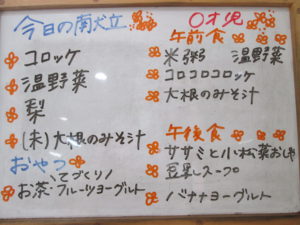 今日の献立
コロッケ
温野菜
梨
(未)大根のみそ汁
おやつ
てづくり
お茶・フルーツヨーグルト
0才児
午前食
米粥 温野菜
コロコロコロッケ
大根のみそ汁
午後食
ササミと小松菜おじや
豆乳スープ
バナナヨーグルト